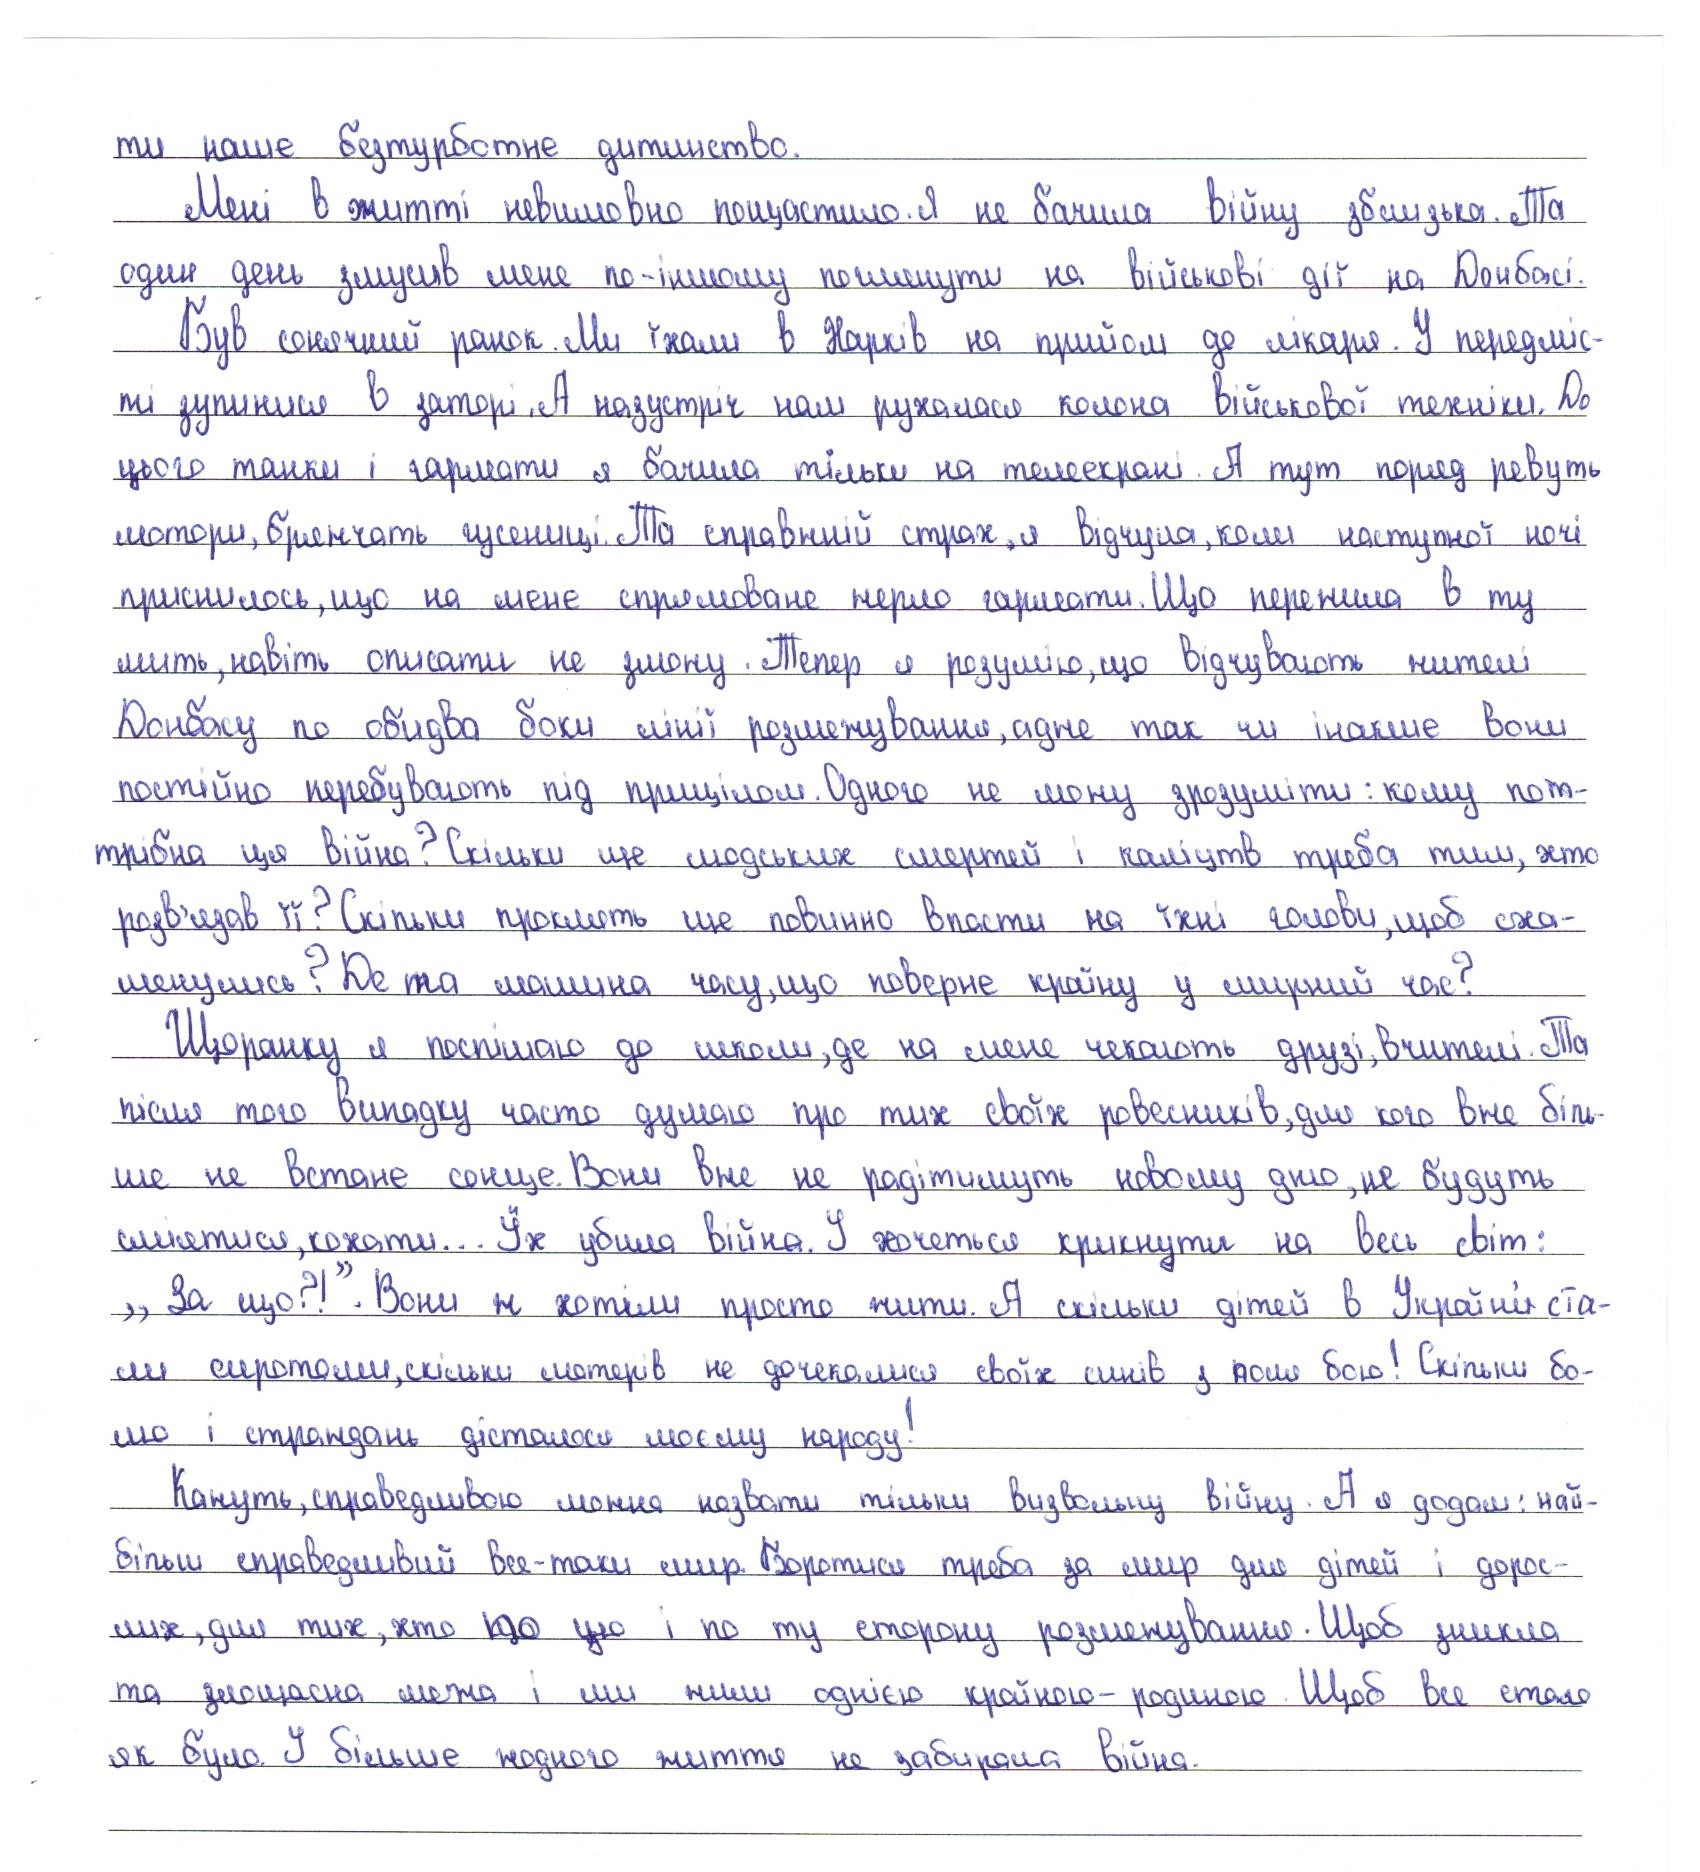 ти наше безтурботне дитинство.
Мені в житті невимовно пощастило. Я не бачила війну зблизька. Та
один день змусив мене по-іншому поглянути на військові дії на Донбасі.
Був сонячний ранок. Ми їхали в Харків на прийом до лікаря. У передміс-
ті зупинися в заторі. А назустріч нам рухалася колона військової техніки. До
цього танки і гармати я бачила тільки на телеекрані. А тут поряд ревуть
мотори, брянчать гусениці. Та справжній страх я відчула, коли наступної ночі
приснилось, що на мене спрямоване жерло гармати. Що пережила в ту
мить, навіть описати не зможу. Тепер я розумію, що відчувають жителі
Донбасу по обидва боки лінії розмежування, адже так чи інакше вони
постійно перебувають під прицілом. Одного не можу зрозуміти: кому пот-
трібна ця війна? Скільки ще людських смертей і каліцтв треба тим, хто
розв'язав її? Скільки проклять ще повинно впасти на їхні голови, щоб сха-
менулись? Де та машина часу, що поверне країну у мирний час?
Щоранку я поспішаю до школи, де на мене чекають друзі, вчителі. Та
після того випадку часто думаю про тих своїх ровесників, для кого вже біль-
ше не встане сонце. Вони вже не радітимуть новому дню, не будуть
сміятися, кохати... Їх убила війна. І хочеться крикнути на весь світ:
,, За що?!”. Вони ж хотіли просто жити. А скільки дітей в Україні ста-
ли сиротами, скільки матерів не дочекалися своїх синів з поля бою! Скільки бо-
лю і страждань дісталося моєму народу!
Кажуть, справедливою можна назвати тільки визвольну війну. А я додам: най-
більш справедливий все-таки мир. Боротися треба за мир для дітей і дорос-
лих, для тих, хто по цю і по ту сторону розмежування. Щоб зникла
та злощасна межа і ми жили однією країною-родиною. Щоб все стало
як було. І більше жодного життя не забирала війна.